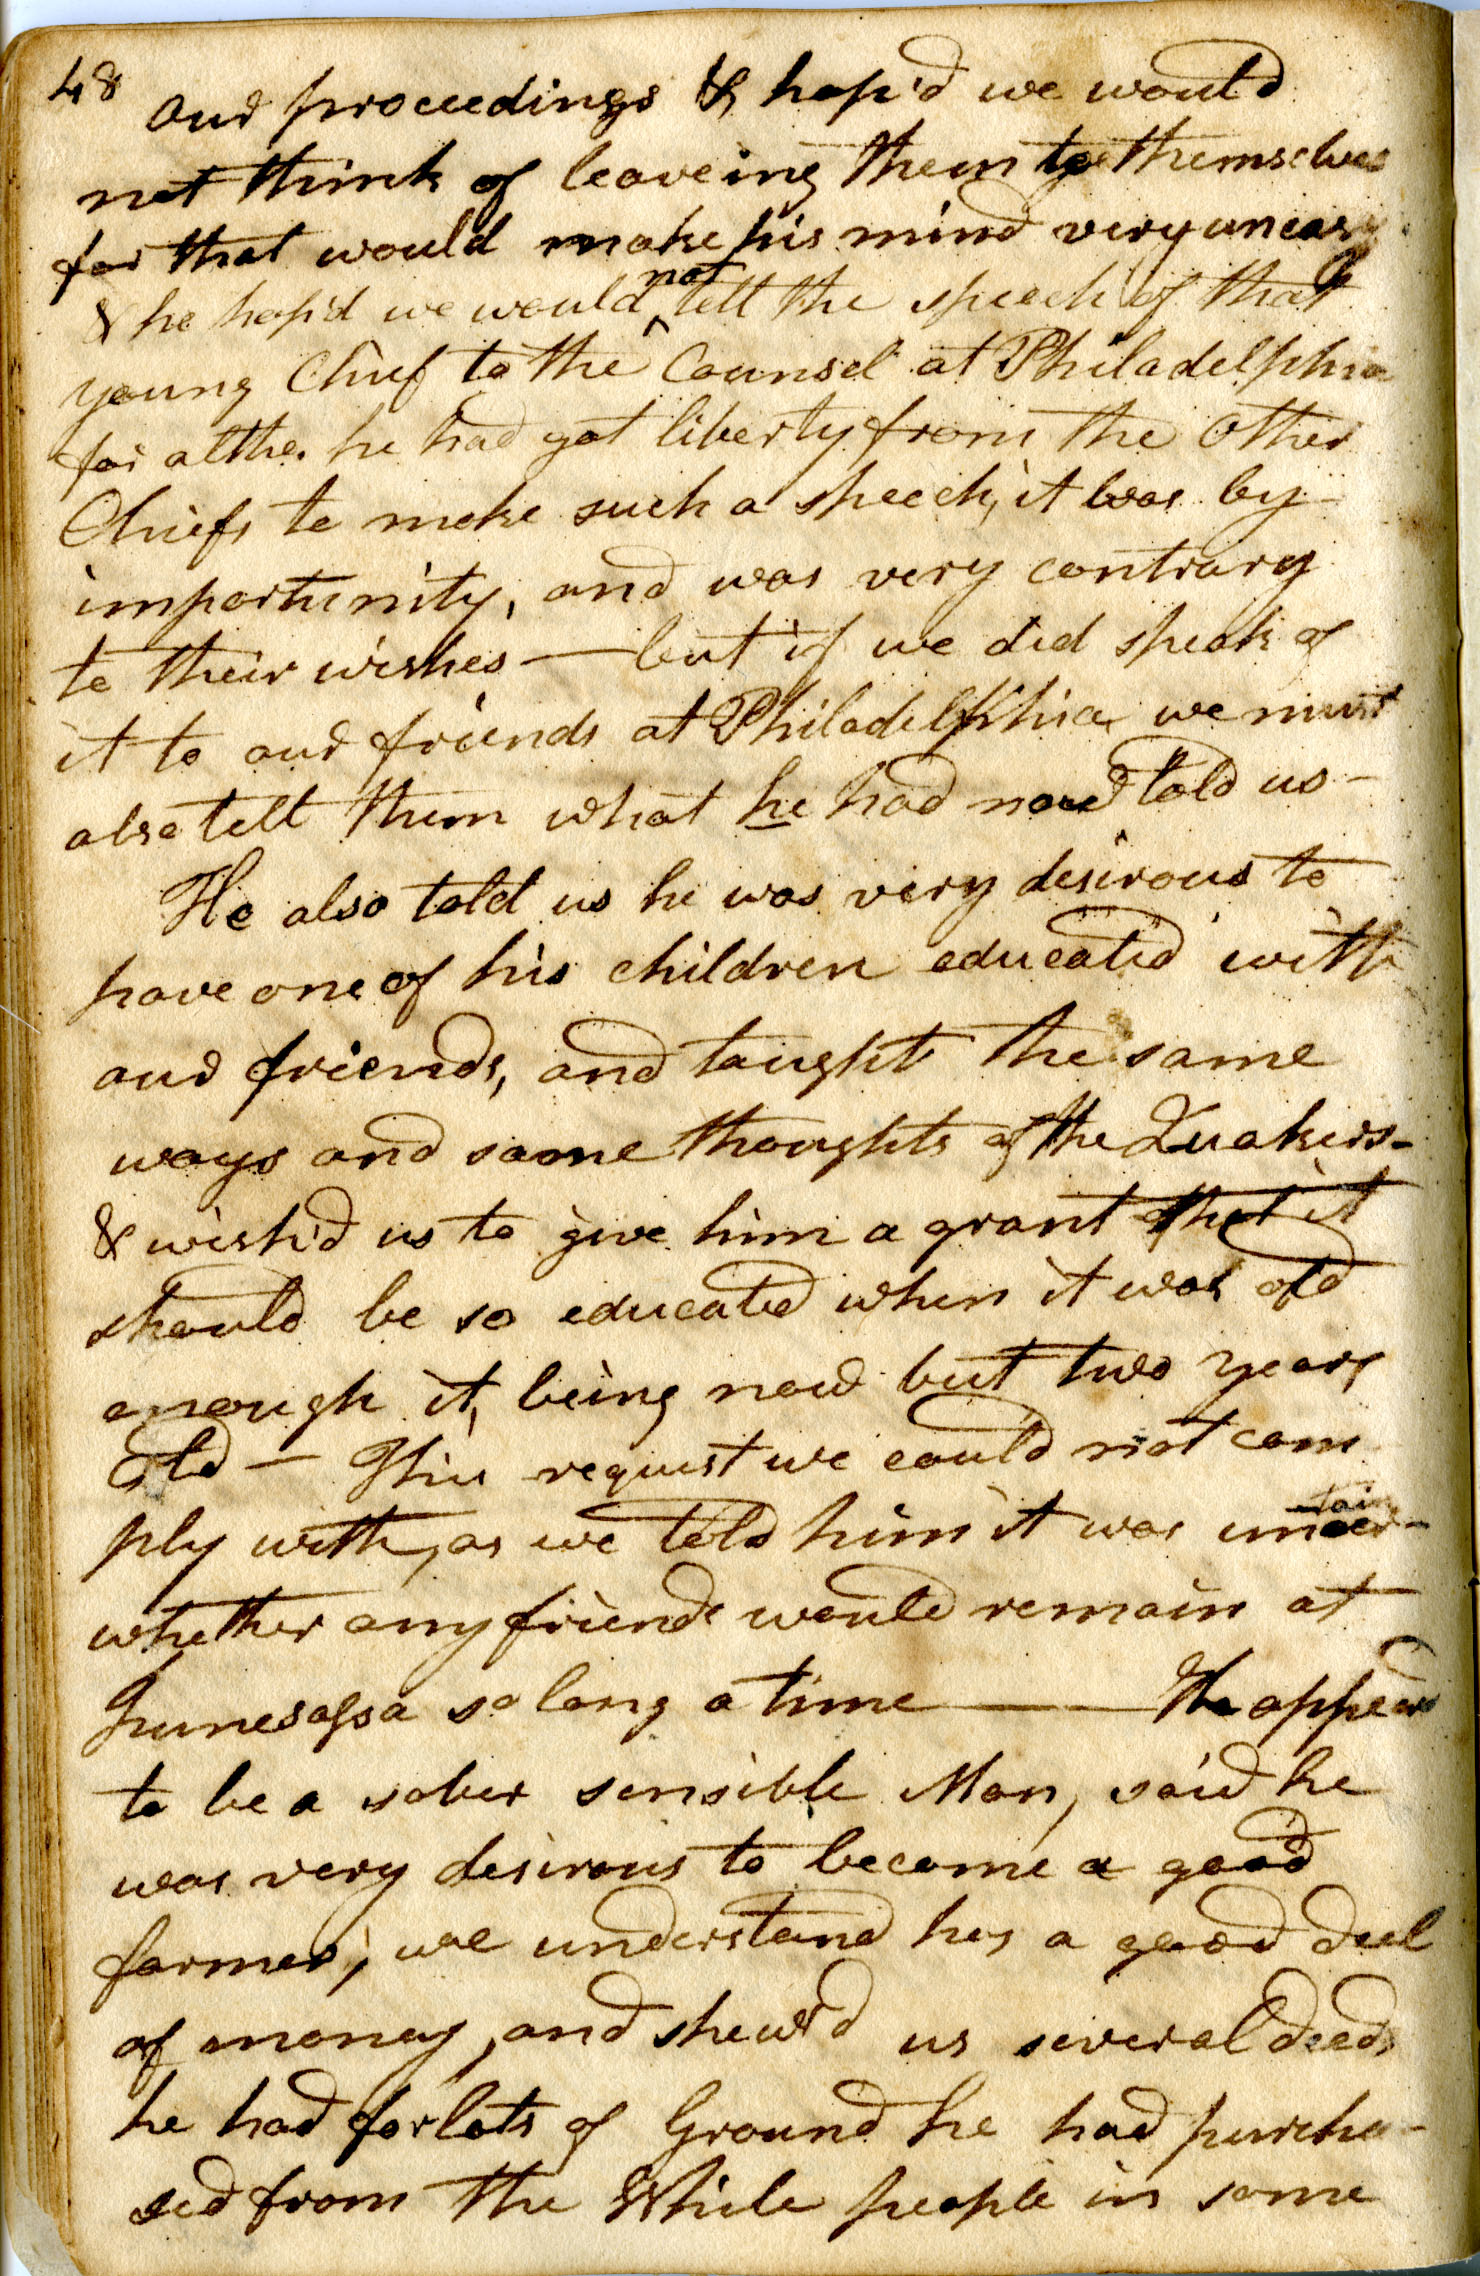 48
our proceedings & hop'd we would
not think of leaveing them to themselves
for that would make his mind very uneasy
& he hop'd we would not tell the speech of that
young Chief to the Counsel at Philadelphia
for altho. he had got liberty from the Other
Chiefs to make such a speech, it was by
importunity, and was very contrary
to their wishes — but if we did speak of
it to our friends at Philadelphia we must
also tell them what he had now told us -
He also told us he was very desirous to
have one of his children educated with
our friends, and taught the same
ways and same thoughts of the Quakers -
& wish'd us to give him a grant that it
should be so educated when it was old
enough it, being now but two years
Old — This request we could not com
ply with, as we told him it was uncertain
whether any friends would remain at
Junesassa so long a time —— He appears
to be a sober sensible Man, said he
was very desirous to become a good
farmer, we understand has a good deel
of money, and shew'd us several deeds
he had for lots of Ground he had purcha-
sed from the White people in some